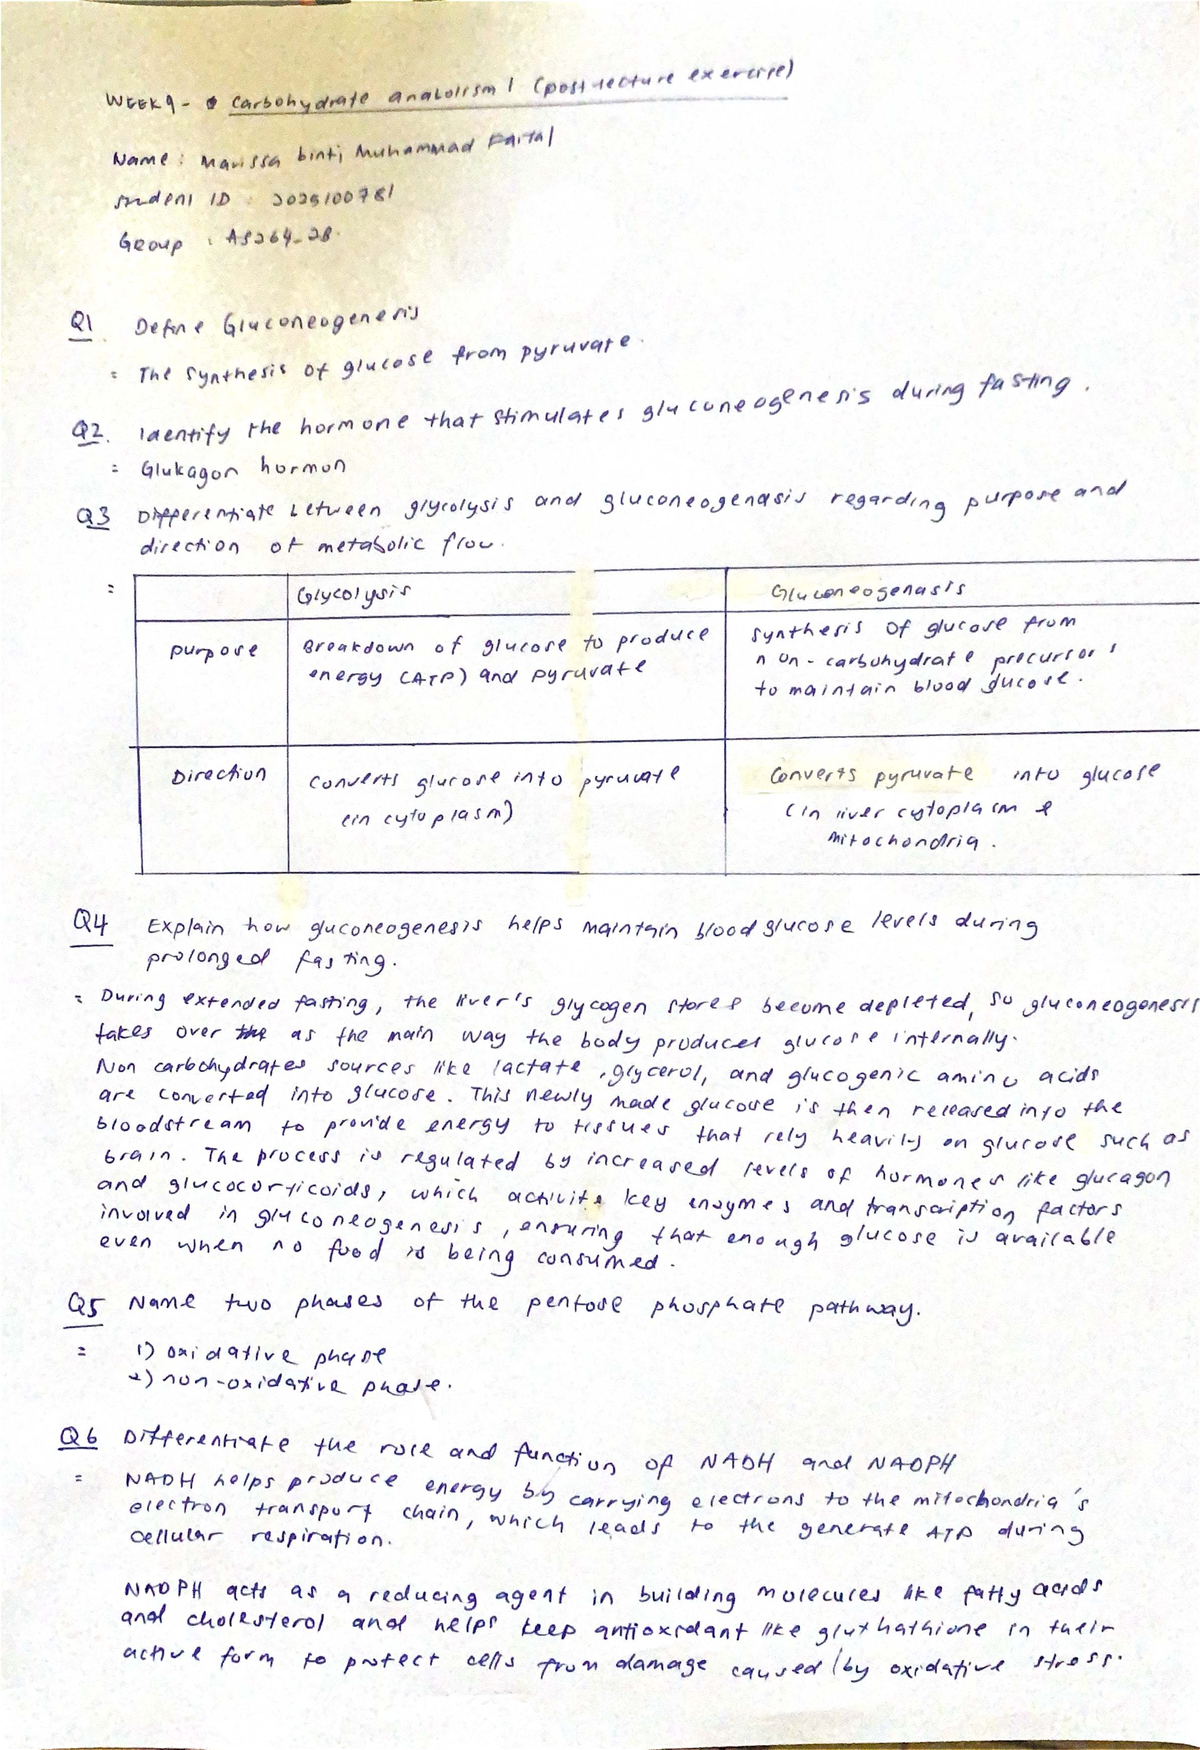 WEEK 9 - Carbohydrate anabolism 1 (post-lecture exercise)
Name : Marissa binti Muhammad Faital
Student ID : 2025100781
Group : AS264_2B.
Q1 Define Gluconeogenesis
= The synthesis of glucose from pyruvate.
Q2. Identify the hormone that stimulates gluconeogenesis during fasting.
= Glukagon hormon
Q3 Differentiate between glycolysis and gluconeogenasis regarding purpose and
direction of metabolic flow.
= Glycolysis Gluconeogenasis
purpose Breakdown of glucose to produce energy (ATP) and pyruvate
synthesis of glucose from
non-carbohydrate precursors
to maintain blood glucose.
Direction converts glucose into pyruvate
(in cytoplasm)
Converts pyruvate into glucose
(in liver cytoplasm &
mitochondria.
Q4 Explain how gluconeogenesis helps maintain blood glucose levels during
prolonged fasting.
= During extended fasting, the liver's glycogen stores become depleted, so gluconeogenesis
takes over as the main way the body produces glucose internally.
Non carbohydrates sources like lactate, glycerol, and glucogenic amino acids
are converted into glucose. This newly made glucose is then released into the
bloodstream to provide energy to tissues that rely heavily on glucose such as
brain. The process is regulated by increased levels of hormones like glucagon
and glucocorticoids, which activite key enzymes and transcription factors
involved in gluconeogenesis, ensuring that enough glucose is available
even when no food is being consumed.
Q5 Name two phases of the pentose phosphate pathway.
= 1) oxidative phase
2) non-oxidative phase.
Q6 Differentiate the role and function of NADH and NADPH
= NADH helps produce energy by carrying electrons to the mitochondria's
electron transport chain, which leads to the generate ATP during
cellular respiration.
NADPH acts as a reducing agent in building molecules like fatty acids
and cholesterol and helps keep antioxidant like gluthathione in their
active form to protect cells from damage caused by oxidative stress.